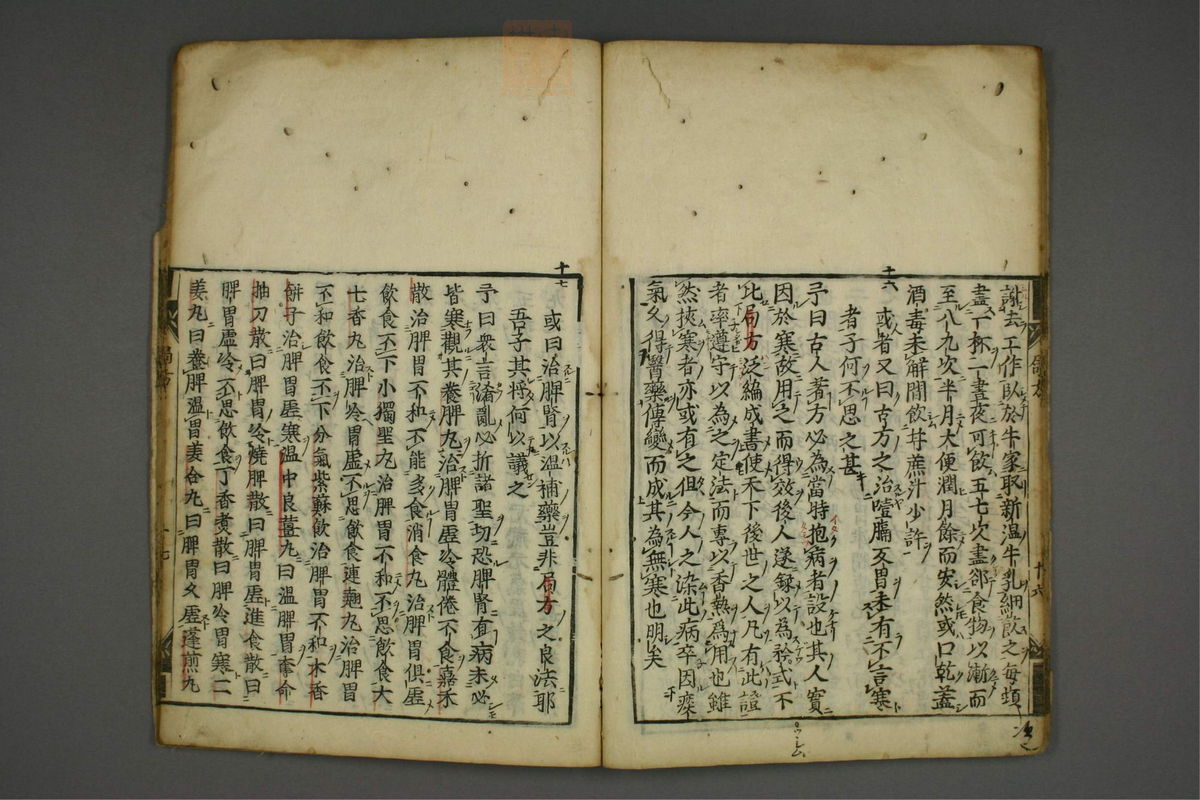 十六
辭去工作臥於牛家取新温牛乳細飲之每頓
盡一杯一晝夜可飲五七次盡却食物以漸而
至八九次半月大便潤月餘而安然或口乾盖
酒毒未解間飲甘蔗汁少許
或者又曰古方之治噎膈反胃未有不言寒
者子何不思之甚
予曰古人著方必為當時抱病者設也其人實
因於寒故用之而得效後人遂錄以為祢式不
此局方泛編成書使天下後世之人凡有此證
者率遵守以為之定法而專以香熱為用也雖
然挾寒者亦或有之但今人之染此病卒因痰
氣久得醫藥傳變而成其為無寒也明矣
十七
或曰治脾腎以温補藥豈非局方之良法耶
吾子其將何以議之
予曰衆言淆亂必折諸聖切恐脾腎有病未必
皆寒觀其養脾丸治脾胃虛冷體倦不食嘉禾
散治脾胃不和不能多食消食丸治脾胃俱虛
飲食不下小獨聖丸治脾胃不和不思飲食大
七香丸治脾冷胃虛不思飲食連翹丸治脾胃
不和飲食不下分氣紫蘇飲治脾胃不和木香
餅子治脾胃虛寒温中良薑丸曰温脾胃奪命
抽刀散曰脾胃冷燒脾散曰脾胃虛進食散曰
脾胃虛冷不思飲食丁香煮散曰脾冷胃寒二
姜丸曰養脾温胃姜合丸曰脾胃久虛蓬煎丸